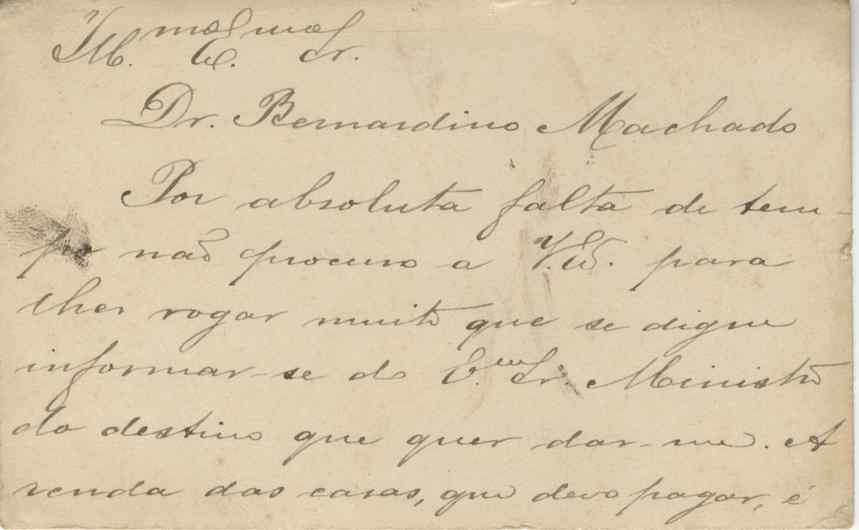 Ill.mo Ex.mo Sr.
Dr. Bernardino Machado
Por absoluta falta de tem-
po não procuro a V. Ex. para
lher rogar muito que se digne
informar-se do E.mo Sr. Ministro
do destino que quer dar-me. A
renda das casas, que devo pagar, é